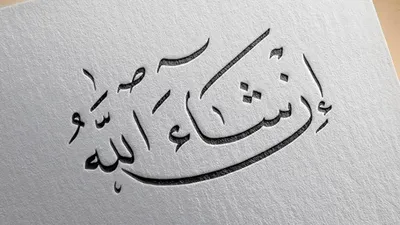 إِنْ شَاءَ اللَّهُ